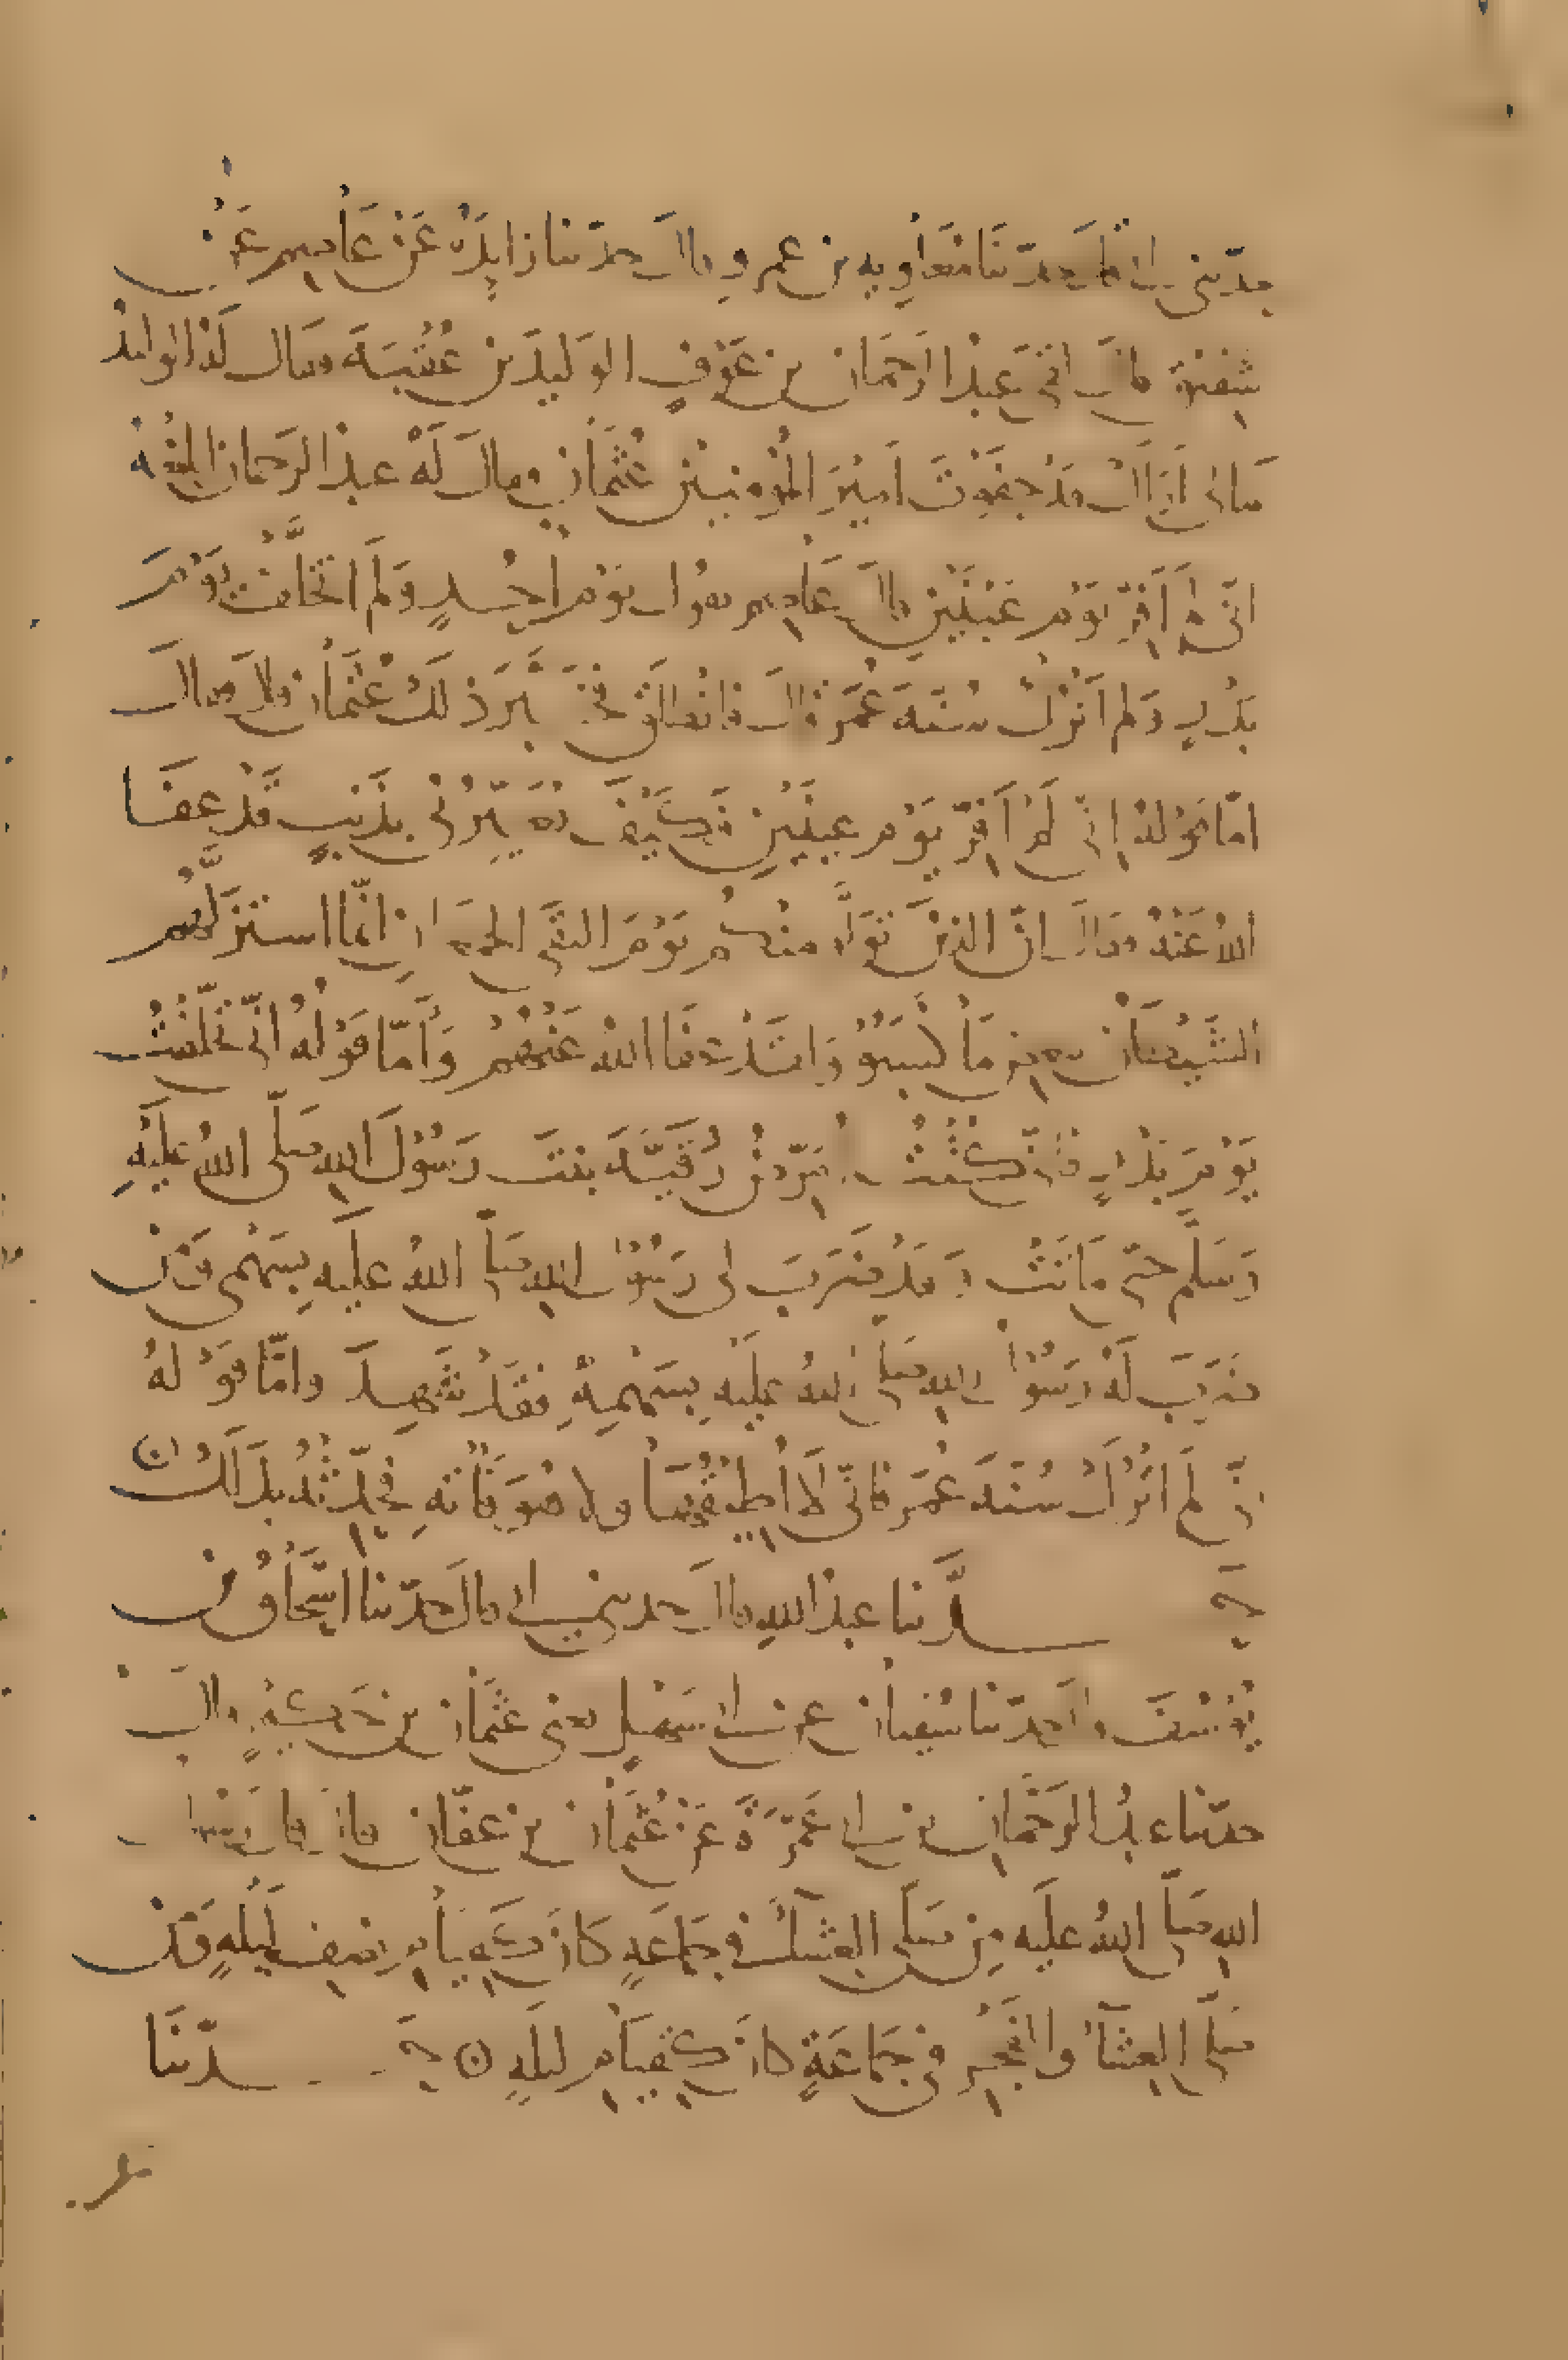 حدّثني ابي قال حدّثنا معاوية بن عمرو قال حدّثنا زايدة عن عاصم عن
شقيق قال لقي عبد الرحمان بن عوف الوليد بن عقبة فقال له الوليد
مالي أراك قد جفوت امير المؤمنين عثمان فقال له عبد الرحمان ابلغه
انّي لم أفرّ يوم عينين قال عاصم يقول يوم احد ولم اتخلّف يوم
بدر ولم اترك سنّة عمر قال فانطلق فخبّر ذلك عثمان قال فقال
امّا قوله إنّي لم افرّ يوم عينين فكيف يعيّرني بذنب قد عفا
الله عنه فقال انّ الذين تولّوا منكم يوم التقى الجمعان انّما استزلّهم
الشيطان ببعض ما كسبوا ولقد عفا الله عنهم وأمّا قوله انّي تخلّفت
يوم بدر فإنّي كنت امرّض رقيّة بنت رسول الله صلّى الله عليه
وسلّم حتّى ماتت وقد ضرب لي رسول الله صلّى الله عليه بسهمي ومن
ضرب له رسول الله صلّى الله عليه بسهمه فقد شهد وامّا قوله
انّي لم اترك سنّة عمر فانّي لا أطيقها ولا هو فأته فحدّثه بذلك
حدّثنا عبد الله قال حدثني ابي قال حدّثنا اسحاق بن
يوسف قال حدّثنا سفيان عن ابي سهل يعني عثمان بن حكيم قال
حدّثنا عبد الرحمان بن ابي عمرة عن عثمان بن عفّان قال قال رسول
الله صلّى الله عليه من صلّى العشاء في جماعة كان كقيام نصف ليلة ومن
صلّى العشاء والفجر في جماعة كان كقيام ليلة ن حدّثنا